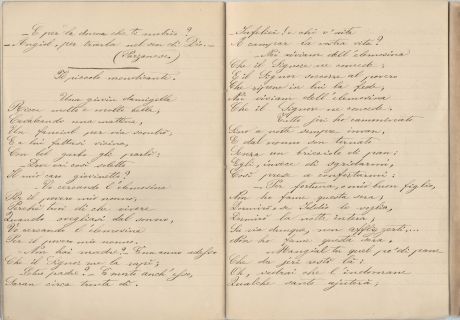 E per la duva che ti
Angiol per trarla nel sen di Dio.
(Parzanese)
Il piccolo mendicante.
Una giovin damigella
molto e molto bella,
una mattina,
Un fanciul per via scontrò,
E a lui fattasi vicina,
Con bel garbo gli parlò:
Dove vai così soletto
Il mio caro giovinetto?
Vo cercando l'elemosina
Per il povero mio nonno,
Perchè di che vivere
Quando svegliasi dal sonno,
Vo cercando l'elemosina
Per il povero mio nonno.
Non hai madre? E un anno adesso
Che il Signor me la rapì;
Lotuo padre? E morto anch'esso,
Saran circa trenta dì.
Infelici! e chi v'aita
A campar la vostra vita?
Noi viviam dell'elemosina
Che il Signore ne concede;
E il Signor soccorre al povero
Che ripone in lui la fede,
Noi viviam dell'elemosina
Che il Signore ne concede.
Tutto jeri ho camminato
Fino a notte sempre invan,
E dal nonno son tornato
Senza un briciolo di pan;
Egli, invece di sgridarmi,
Così prese a confortarmi:
Per fortuna, o mio buon figlio,
Non ho fame questa sera,
la voglia,
Dormirò la notte intera,
Su via dunque, non affliggerti...
Non ho fame questa sera,
Mangiai tu quel po' di pane
Che da jeri restò là;
Oh, vedrai che l'indomane
Qualche santo ajuterà;